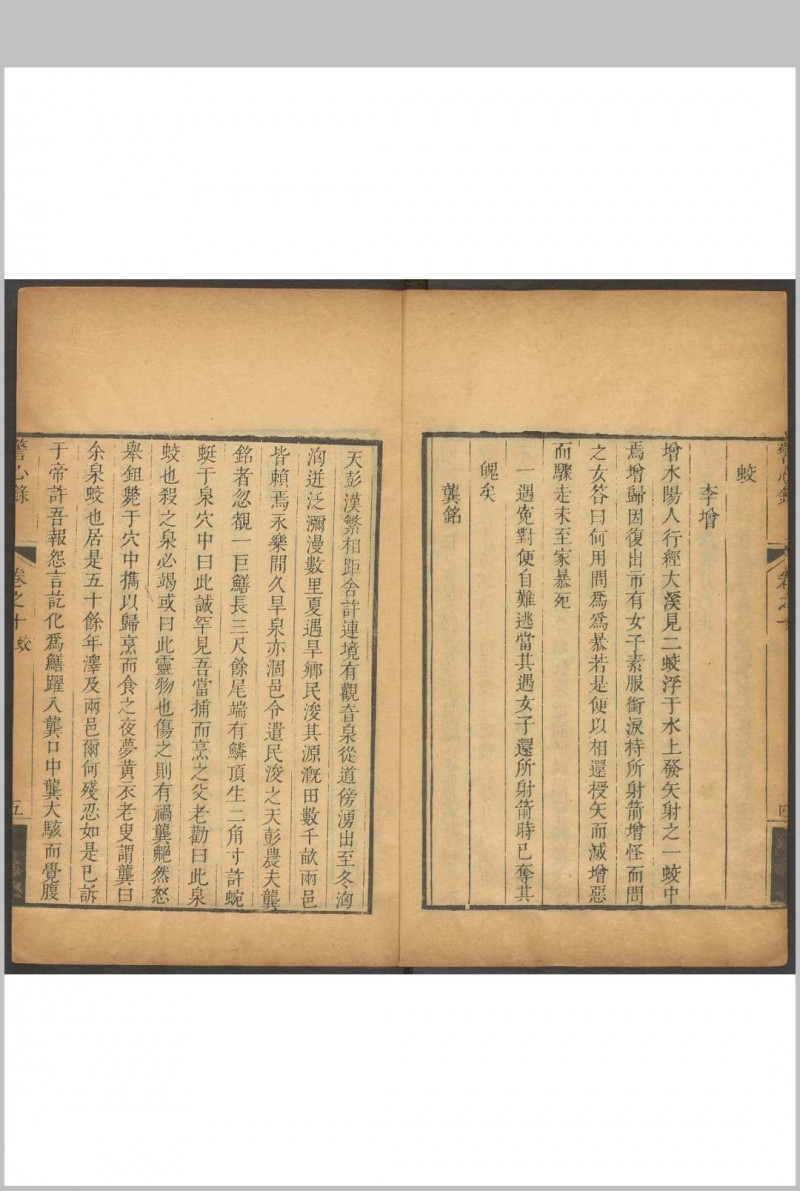 蛟
李增
增水陽人行經大溪見二蛟浮于水上發矢射之一蛟中
焉增歸因復出市有女子素服銜淚持所射箭增怪而問
之女答曰何用問爲爲暴若是便以相還授矢而滅增惡
而驟走未至家暴死
一遇寃對便自難逃當其遇女子還所射箭時已奪其
魄矣
龔銘
卷之十
四
天彭漢繁相距舍許連境有觀音泉從道傍湧出至冬洶
洶迸泛瀰漫數里夏遇旱鄉民浚其源漑田數千畝兩邑
皆賴焉永樂間久旱泉亦涸邑令遣民浚之天彭農夫龔
銘者忽覩一巨鱔長三尺餘尾端有鱗頂生二角寸許蜿
蜒于泉穴中曰此誠罕見吾當捕而烹之父老勸曰此泉
蛟也殺之泉必竭或曰此靈物也傷之則有禍龔艴然怒
舉鉏斃于穴中擕以歸烹而食之夜夢黃衣老叟謂龔曰
余泉蛟也居是五十餘年澤及兩邑爾何殘忍如是已訴
于帝許吾報怨言訖化爲鱔躍入龔口中龔大駭而覺腹
警心錄
卷之十 蛟
五